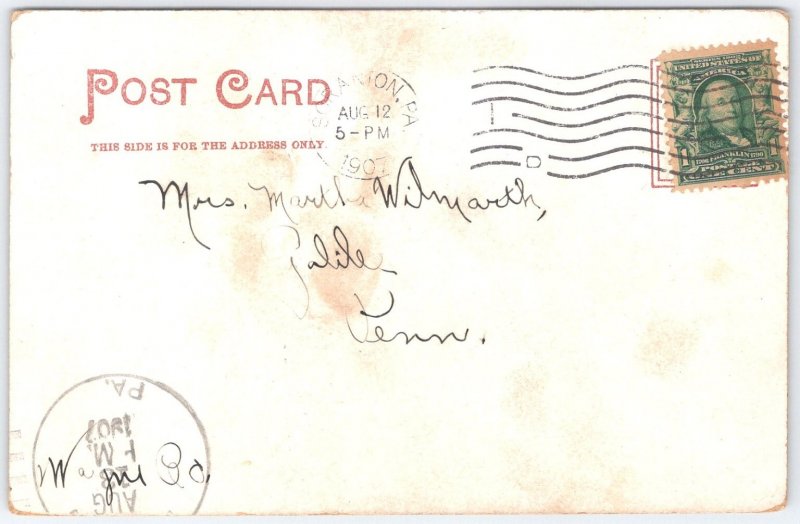 POST CARD
THIS SIDE IS FOR THE ADDRESS ONLY.
SCRANTON, PA
AUG 12
5-PM
1907
1
D
SERIES 1902
UNITED STATES OF
AMERICA
1706 FRANKLIN 1790
POSTAGE
1 ONE CENT 1
Mrs. Martha Wilmarth,
Galile
Penn.
Wayne Co.
PA.
1907
M.
AUG